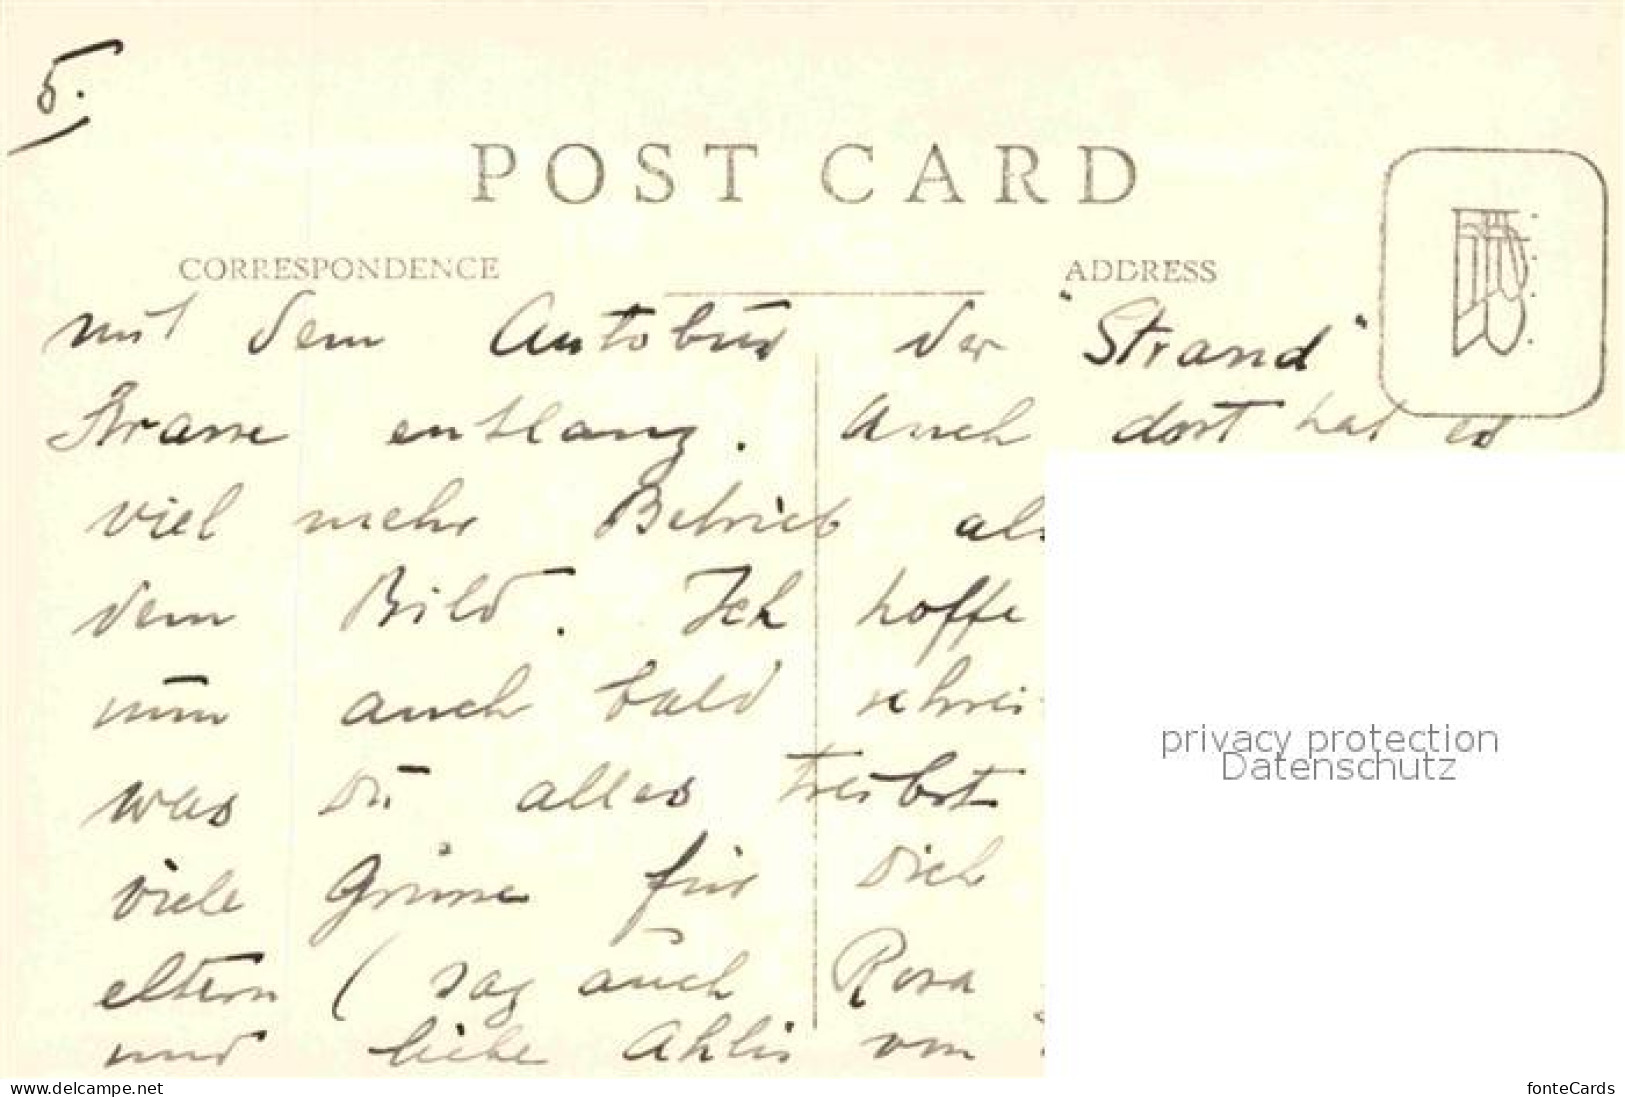 5.
POST CARD
CORRESPONDENCE
ADDRESS
mit dem Autobus der "Strand"
Strasse entlang. Auch dort hat es
viel mehr Betrieb als
dem Bild. Ich hoffe
nun auch bald schrei
was Du alles treibst
viele Grüsse für Dich
eltern ( sag auch Rosa
und liebe von
privacy protection
Datenschutz
www.delcampe.net
fonteCards